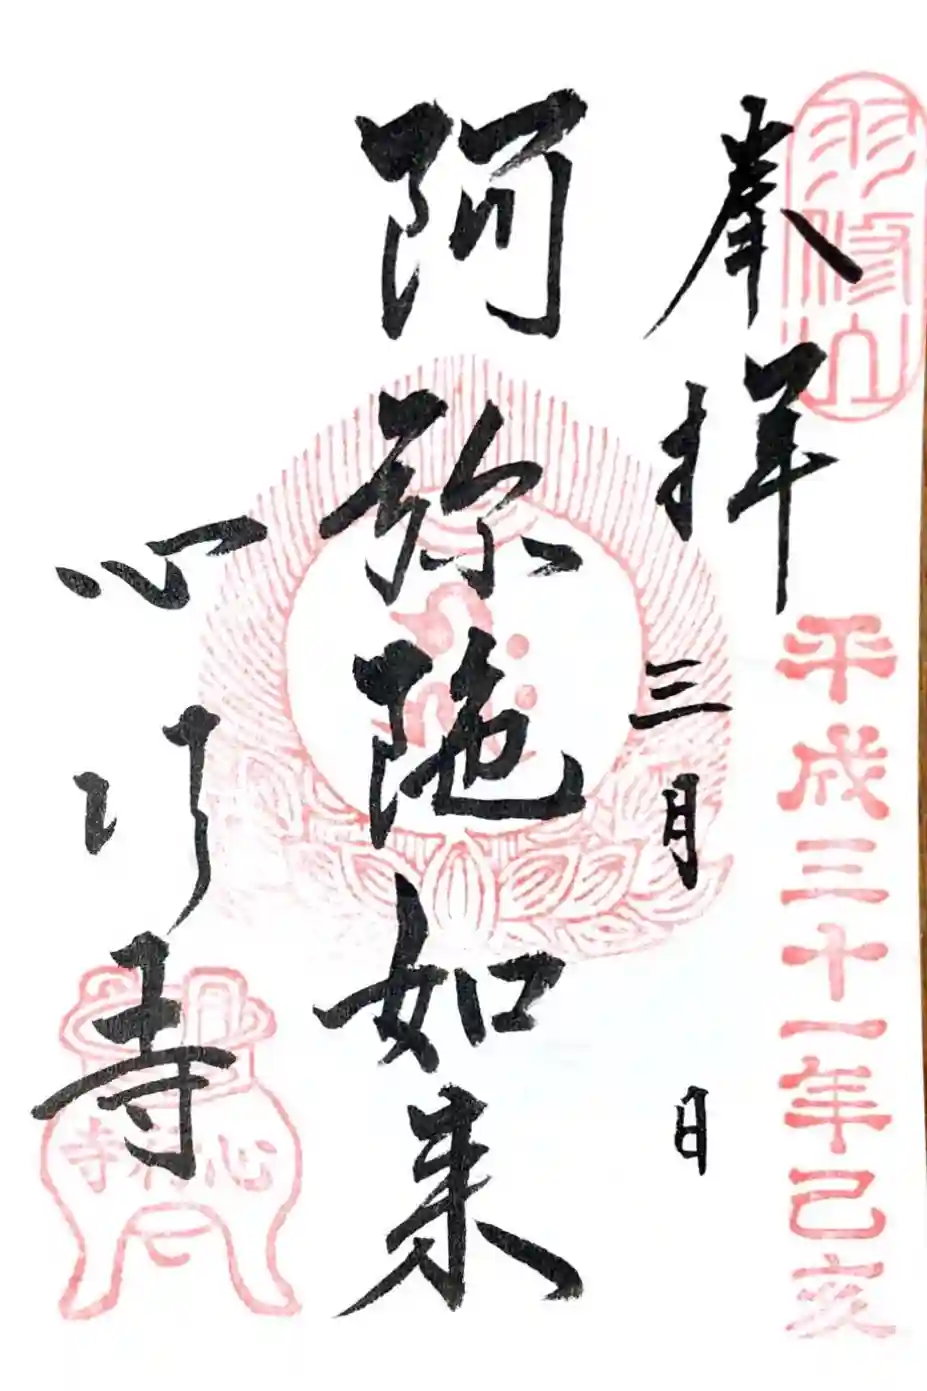 羽黎山
奉拝
平成三十一年己亥
三月 日
阿弥陀如来
心行寺
心行寺